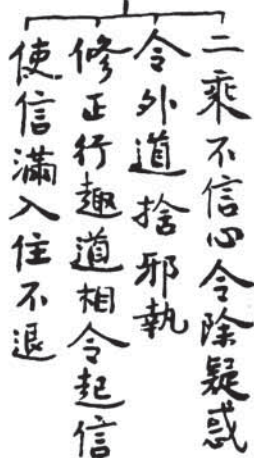 二乘不信心令除疑惑
令外道捨邪執
修正行趣道相令起信
使信滿入住不退